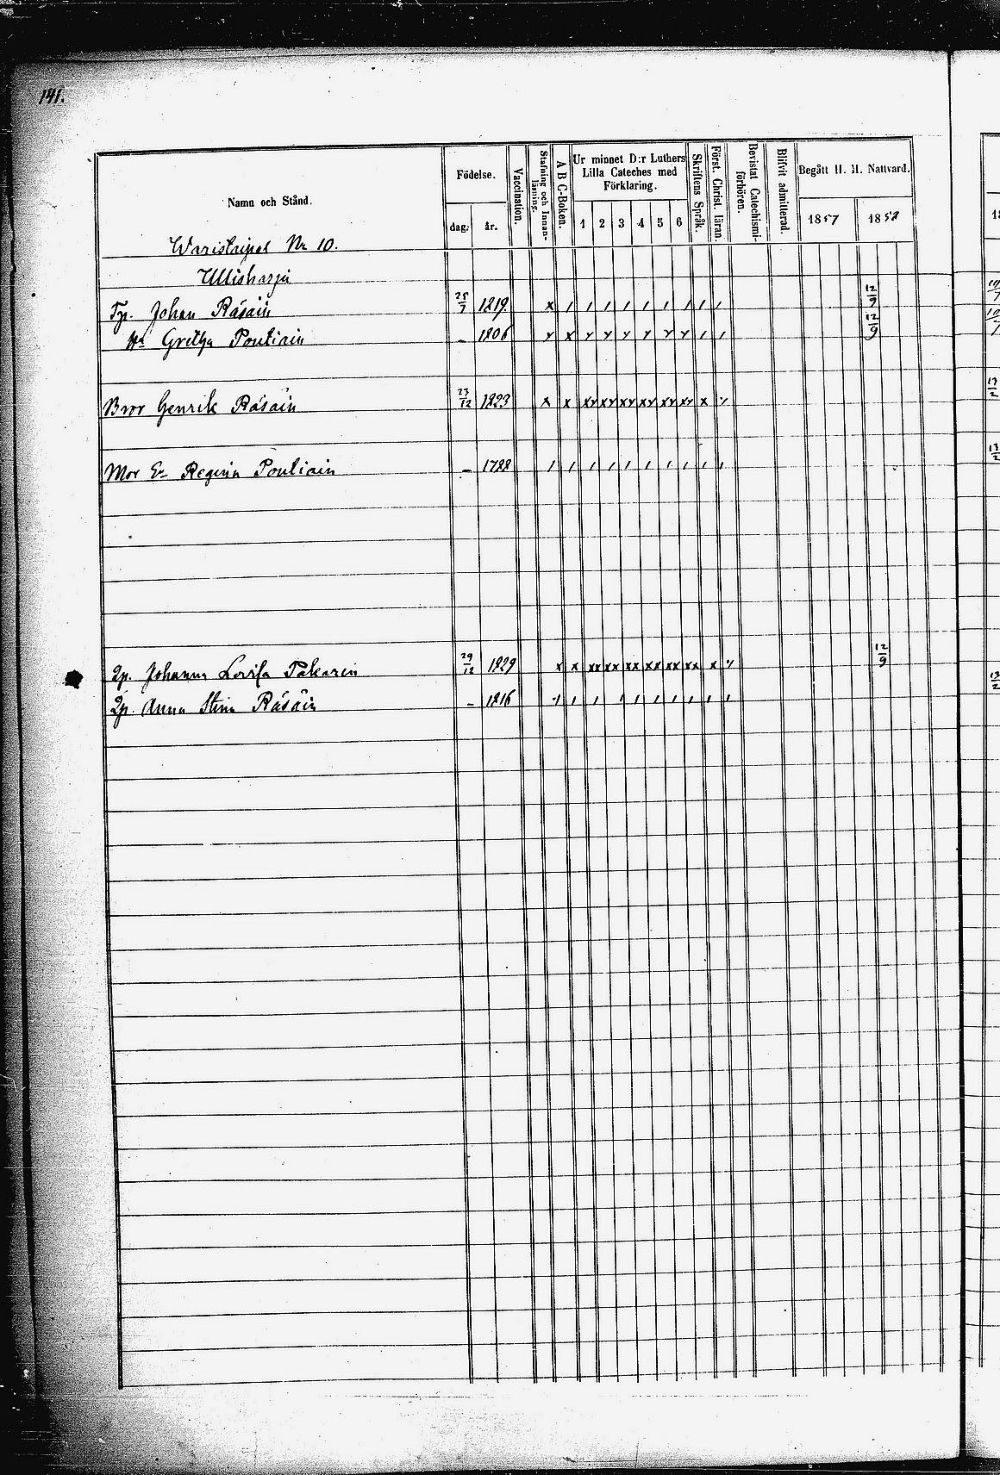 141.
Namn och Stånd.
Födelse.
dag. år.
Vaccination.
Stafning och Innan-läsning.
A B C-Boken.
Ur minnet D:r Luthers Lilla Cateches med Förklaring.
1 2 3 4 5 6
Skriftens Språk.
Först. Christ. läran.
Bevistat Catechismi-förhören.
Blifvit admitterad.
Begått H. H. Nattvard.
1857 1858
Waristaipal No 10.
Ullisharju
Johan Räsäin 25/7 1819. x / / / / / / / / / 12/9
Gretha Poutiain – 1806 x x x x x x x x / / 12/9
Bror Henrik Räsäin 23/12 1823 x x xx xx xx xx xx xx x
Mor E. Regina Poutiain – 1788 / / / / / / / / / /
Johanna Lovisa Pakarin 29/12 1829 x x xx xx xx xx xx xx xx x 12/9
Anna Stina Räsäin – 1816 / / / / / / / / / /